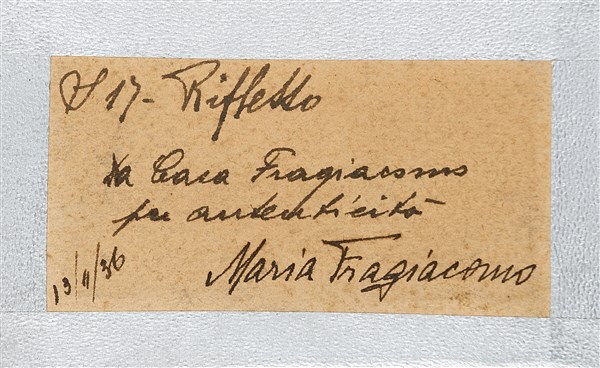 S 17 - Riffesso
Da Casa Fragiacomo
per autenticità
13/11/36
Maria Fragiacomo